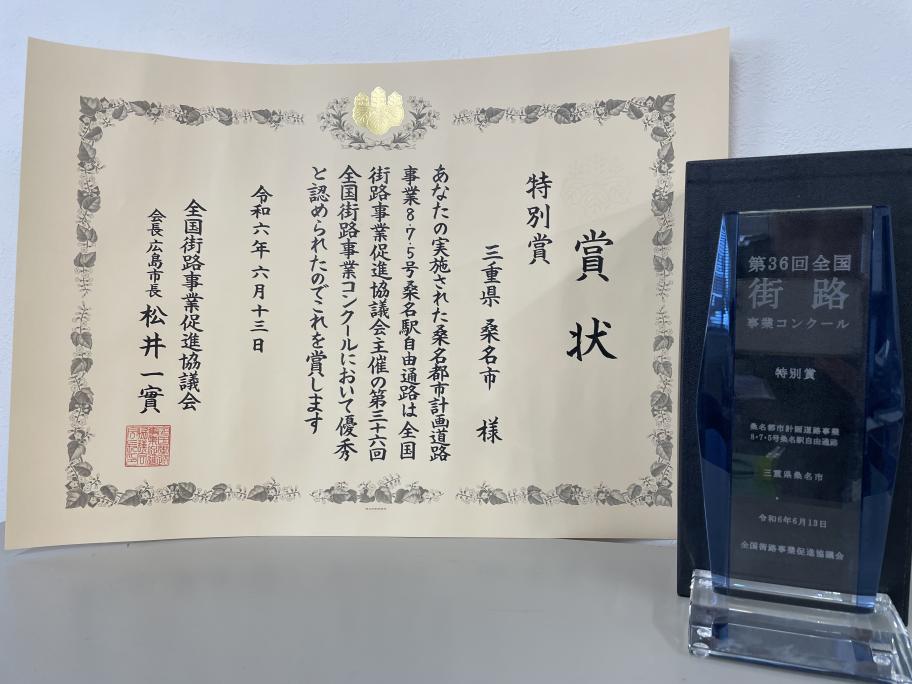 賞状
特別賞
三重県 桑名市 様
あなたの実施された桑名都市計画道路
事業8・7・5号桑名駅自由通路は全国
街路事業促進協議会主催の第三十六回
全国街路事業コンクールにおいて優秀
と認められたのでこれを賞します
令和六年六月十三日
全国街路事業促進協議会
会長 広島市長 松井一實
第36回全国
街路
事業コンクール
特別賞
桑名都市計画道路事業
8・7・5号桑名駅自由通路
三重県桑名市
令和6年6月13日
全国街路事業促進協議会